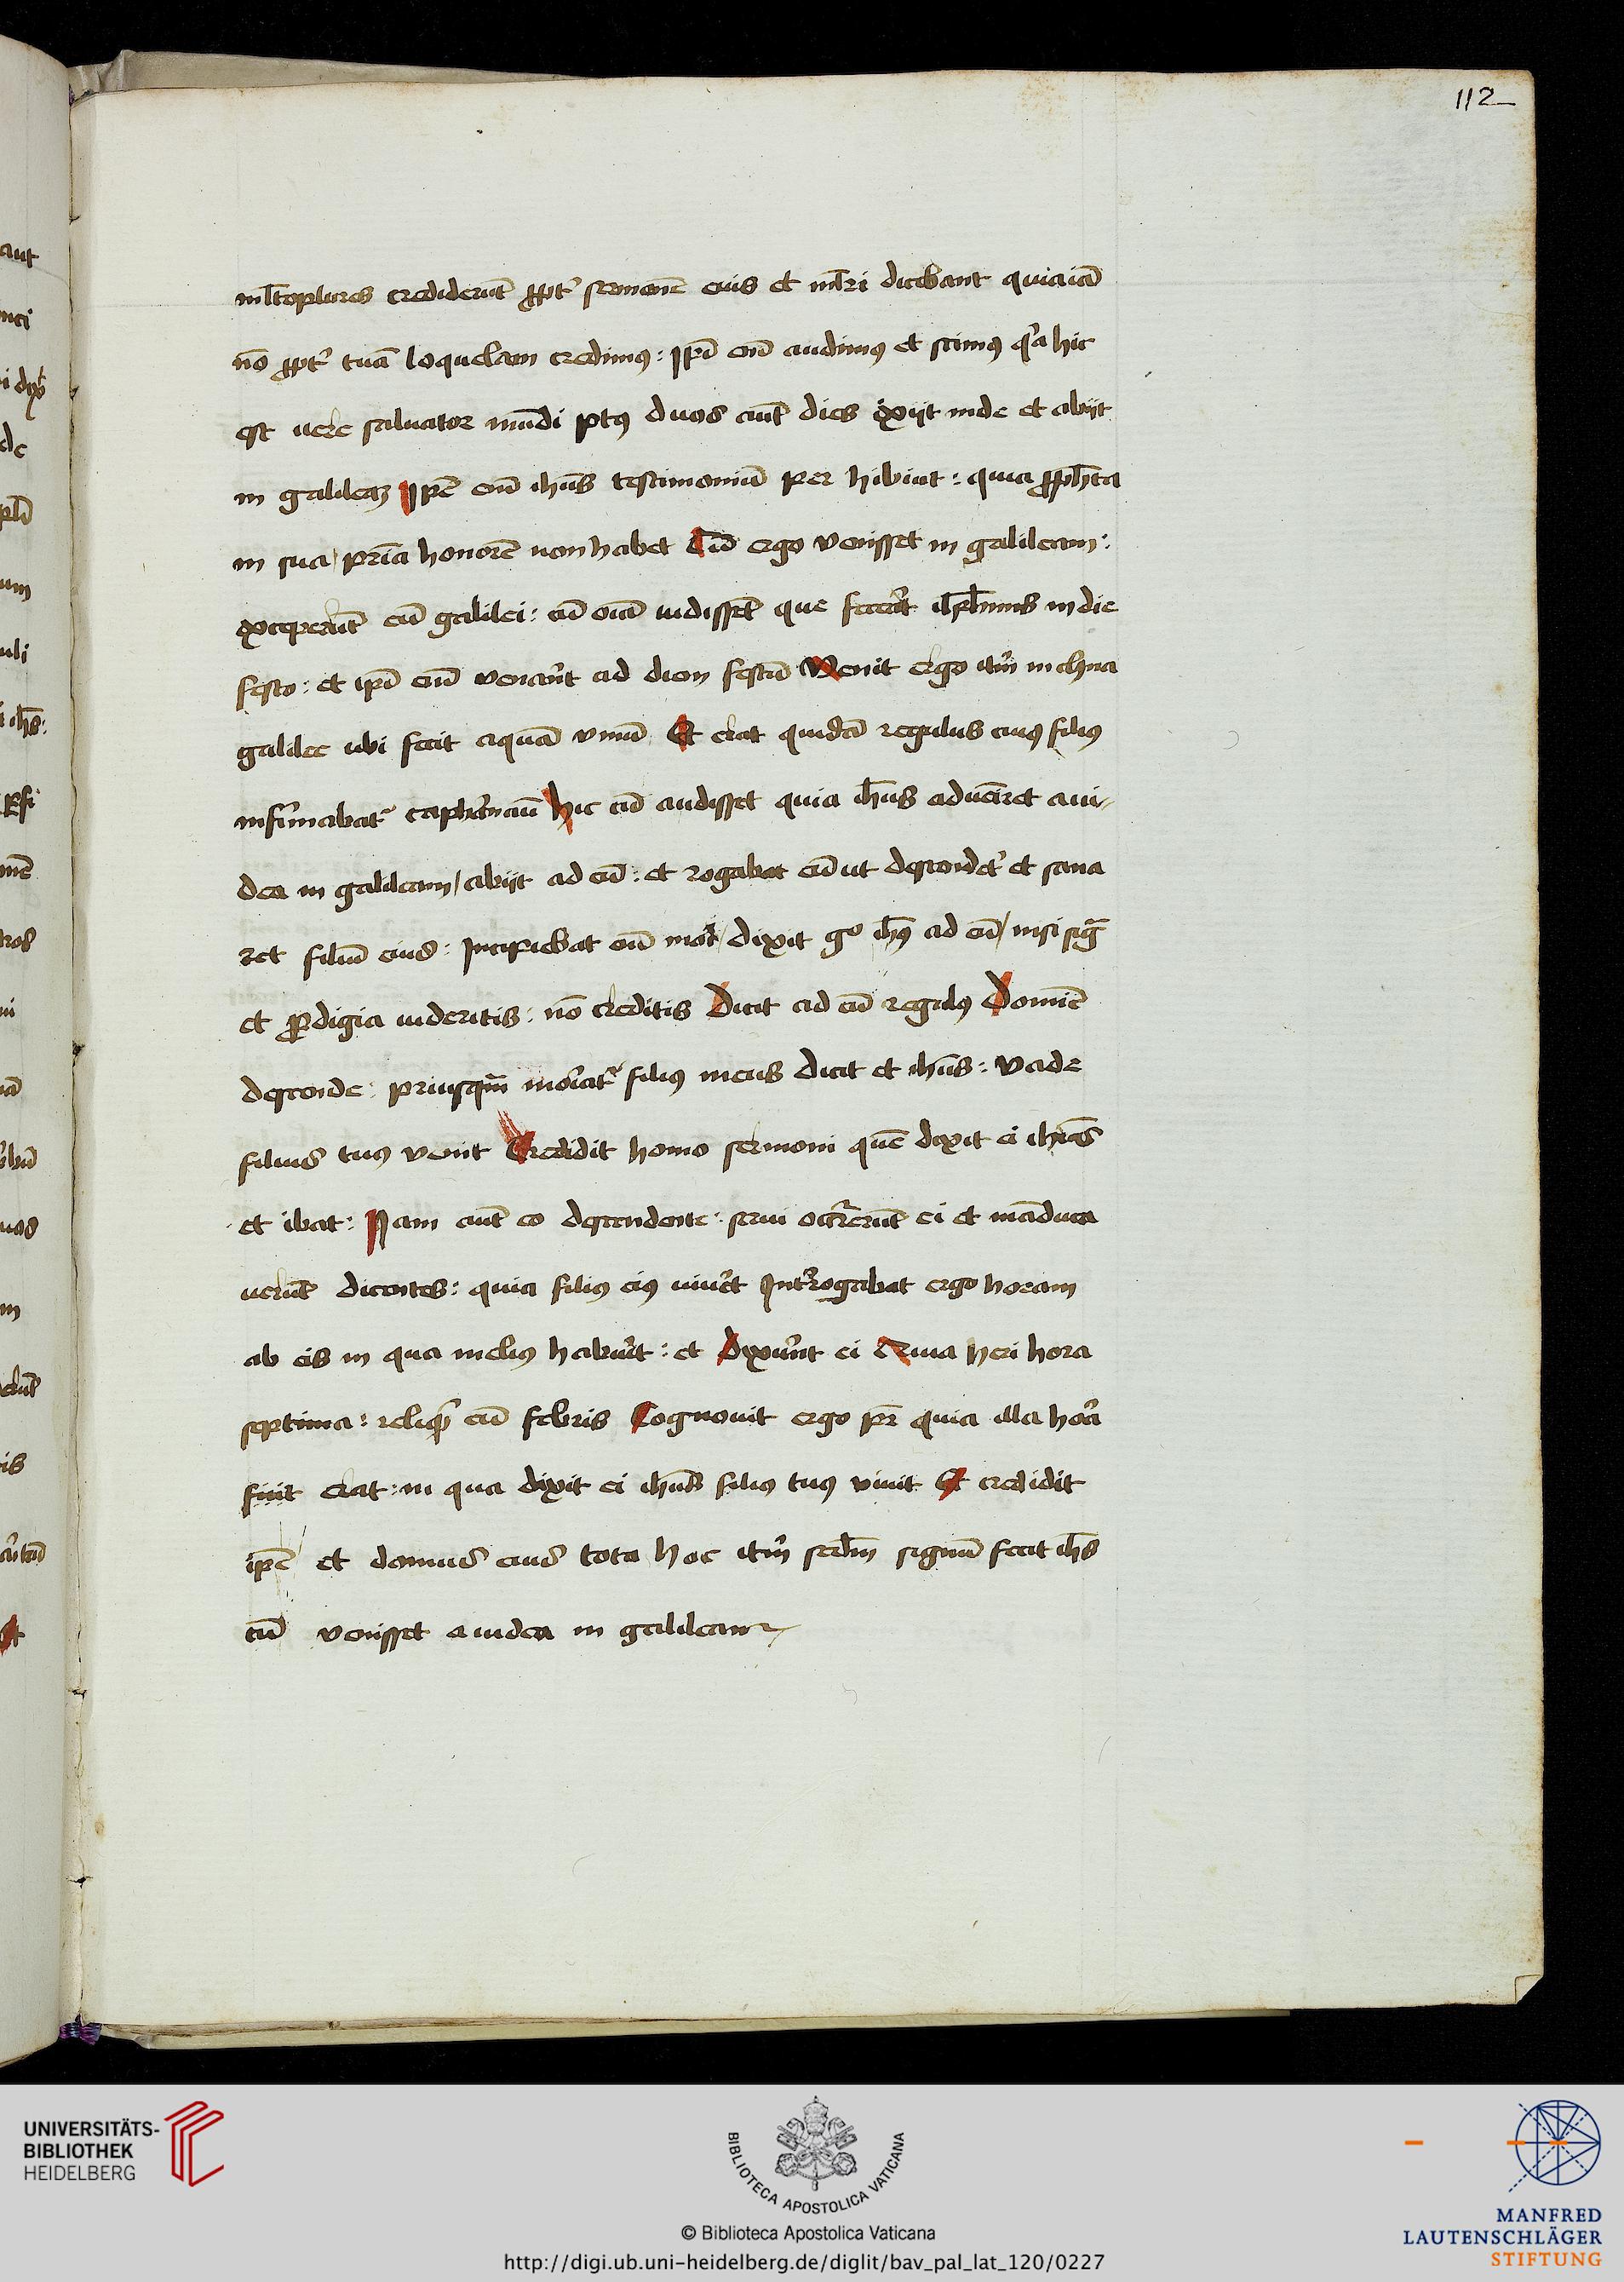 112
ml̄toplures credideru̅t ꝓpt̓ ſermone̅ eius et ml̅ri dicebant quia ia̅
no̅ ꝓpt̓ tua̅ loquelam credimꝰ : ip̅i eni̅ audimꝰ et ſcimꝰ q̓a hic
eſt vere ſaluator mu̅di ptꝰ duos aut̅ dies exijt inde et abijt
in galileaꝫ Ip̅e eni̅ ih̅us teſtimoniu̅ per hibiut : quia ꝓph̅ta
in ſua pr̅ia honore̅ non habet Cu̅ ergo veniſſet in galileam :
exceperu̅t eu̅ galilei : cu̅ o̅ia vidiſſet̅ que fecerat̓ ih̅rl̅mis in die
feſto : et ip̅i eni̅ venera̓t ad diem feſtu̅ Venit ergo itm̓ in chna
galilee ubi fecit aqua̅ vinu̅ Et erat quida̅ regulus cuiꝰ filiꝰ
infirmabat̓ caphernau̅ hic cu̅ audiſſet quia ih̅us adueniret a iu-
dea in galileam / abijt ad eu̅ : et rogabat eu̅ ut deſcendet̓ et ſana
ret filiu̅ eius : Incipiebat eni̅ mori / dixit gͦ ih̅ꝰ ad eu̅ / niſi ſig̅
et ꝓdigia videritis : no̅ creditis Dicit ad eu̅ regulꝰ Domi̅e
deſcende : priuſqm̅ moriat̓ filiꝰ meus Dicit et ih̅us : vade
filius tuꝰ venit Credidit homo ſermoni que̅ dixit ei ih̅us
et ibat : Nam aut̅ eo deſcendente : ſerui occurreru̅t ei et ma̅duca
veru̅t dicentes : quia filiꝰ eiꝰ viuet Int̓rogabat ergo horam
ab eis in qua meliꝰ habuer̓t : et Dixeru̓nt ei Quia heri hora
ſeptima : reliq̓ eu̅ febris Cognouit ergo pr̅ quia illa hora
fuit erat : in qua dixit ei ih̅us filiꝰ tuꝰ viuit Et credidit
ip̅e et domus eius tota hoc itm̓ ſed̅m ſignu̅ fecit ih̅s
cu̅ veniſſet a iudea in galileam
UNIVERSITÄTS-
BIBLIOTHEK
HEIDELBERG
BIBLIOTECA APOSTOLICA VATICANA
© Biblioteca Apostolica Vaticana
http://digi.ub.uni-heidelberg.de/diglit/bav_pal_lat_120/0227
MANFRED
LAUTENSCHLÄGER
STIFTUNG